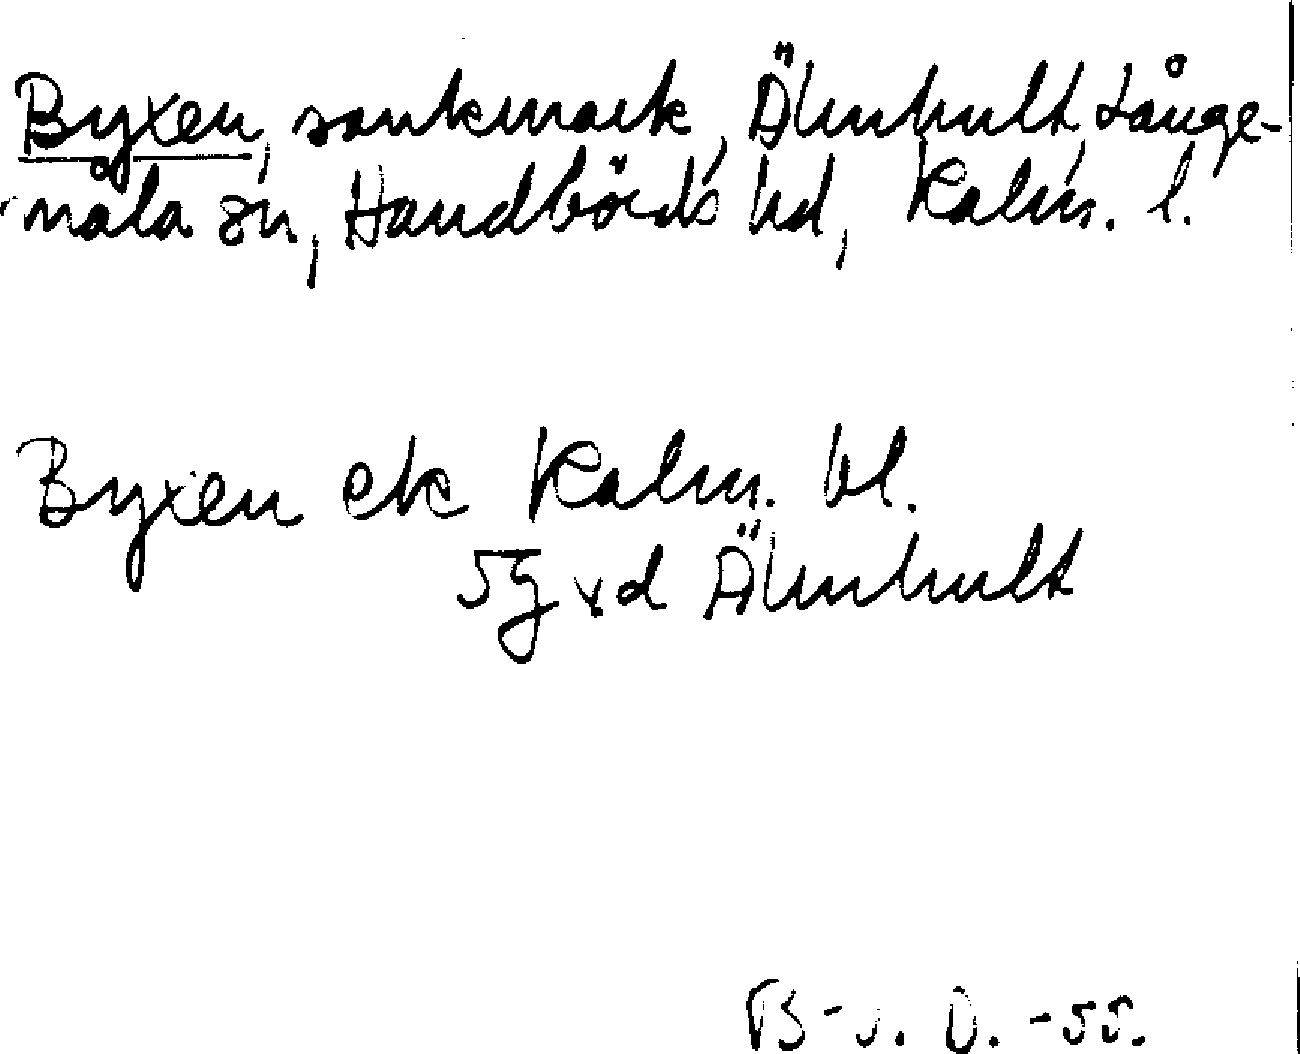 Byxen, sankmark, Älmhult, Långe-
måla sn, Handbörds hd, Kalm. l.
Byxen ek Kalm. bl.
5g vd Älmhult
B-s. D. -55.